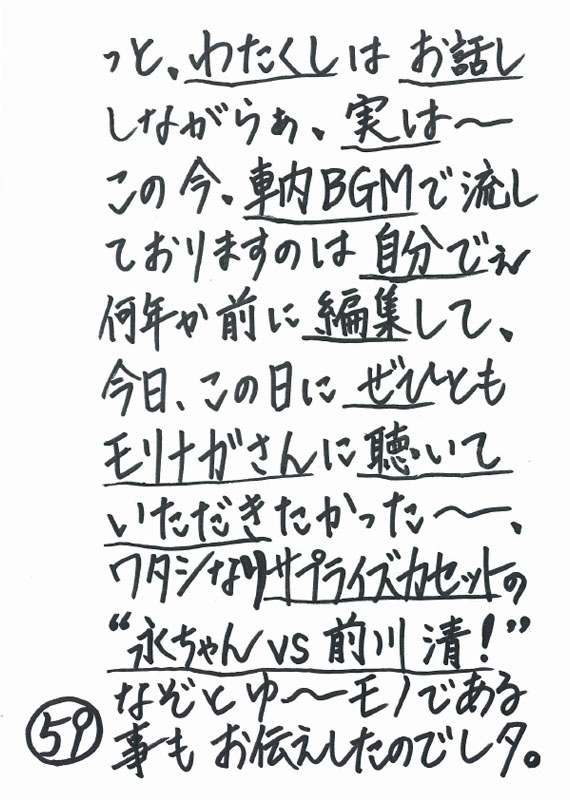 っと、わたくしは お話し
しながらぁ、実は〜
この今、車内BGMで流し
ておりますのは 自分でぇ
何年か前に 編集して、
今日、この日に ぜひとも
モリナガさんに 聴いて
いただきたかった〜、
ワタシなりサプライズカセットの
“永ちゃん vs 前川 清！”
なぞとゆ〜モノである
事も お伝えしたのでレタ。
59